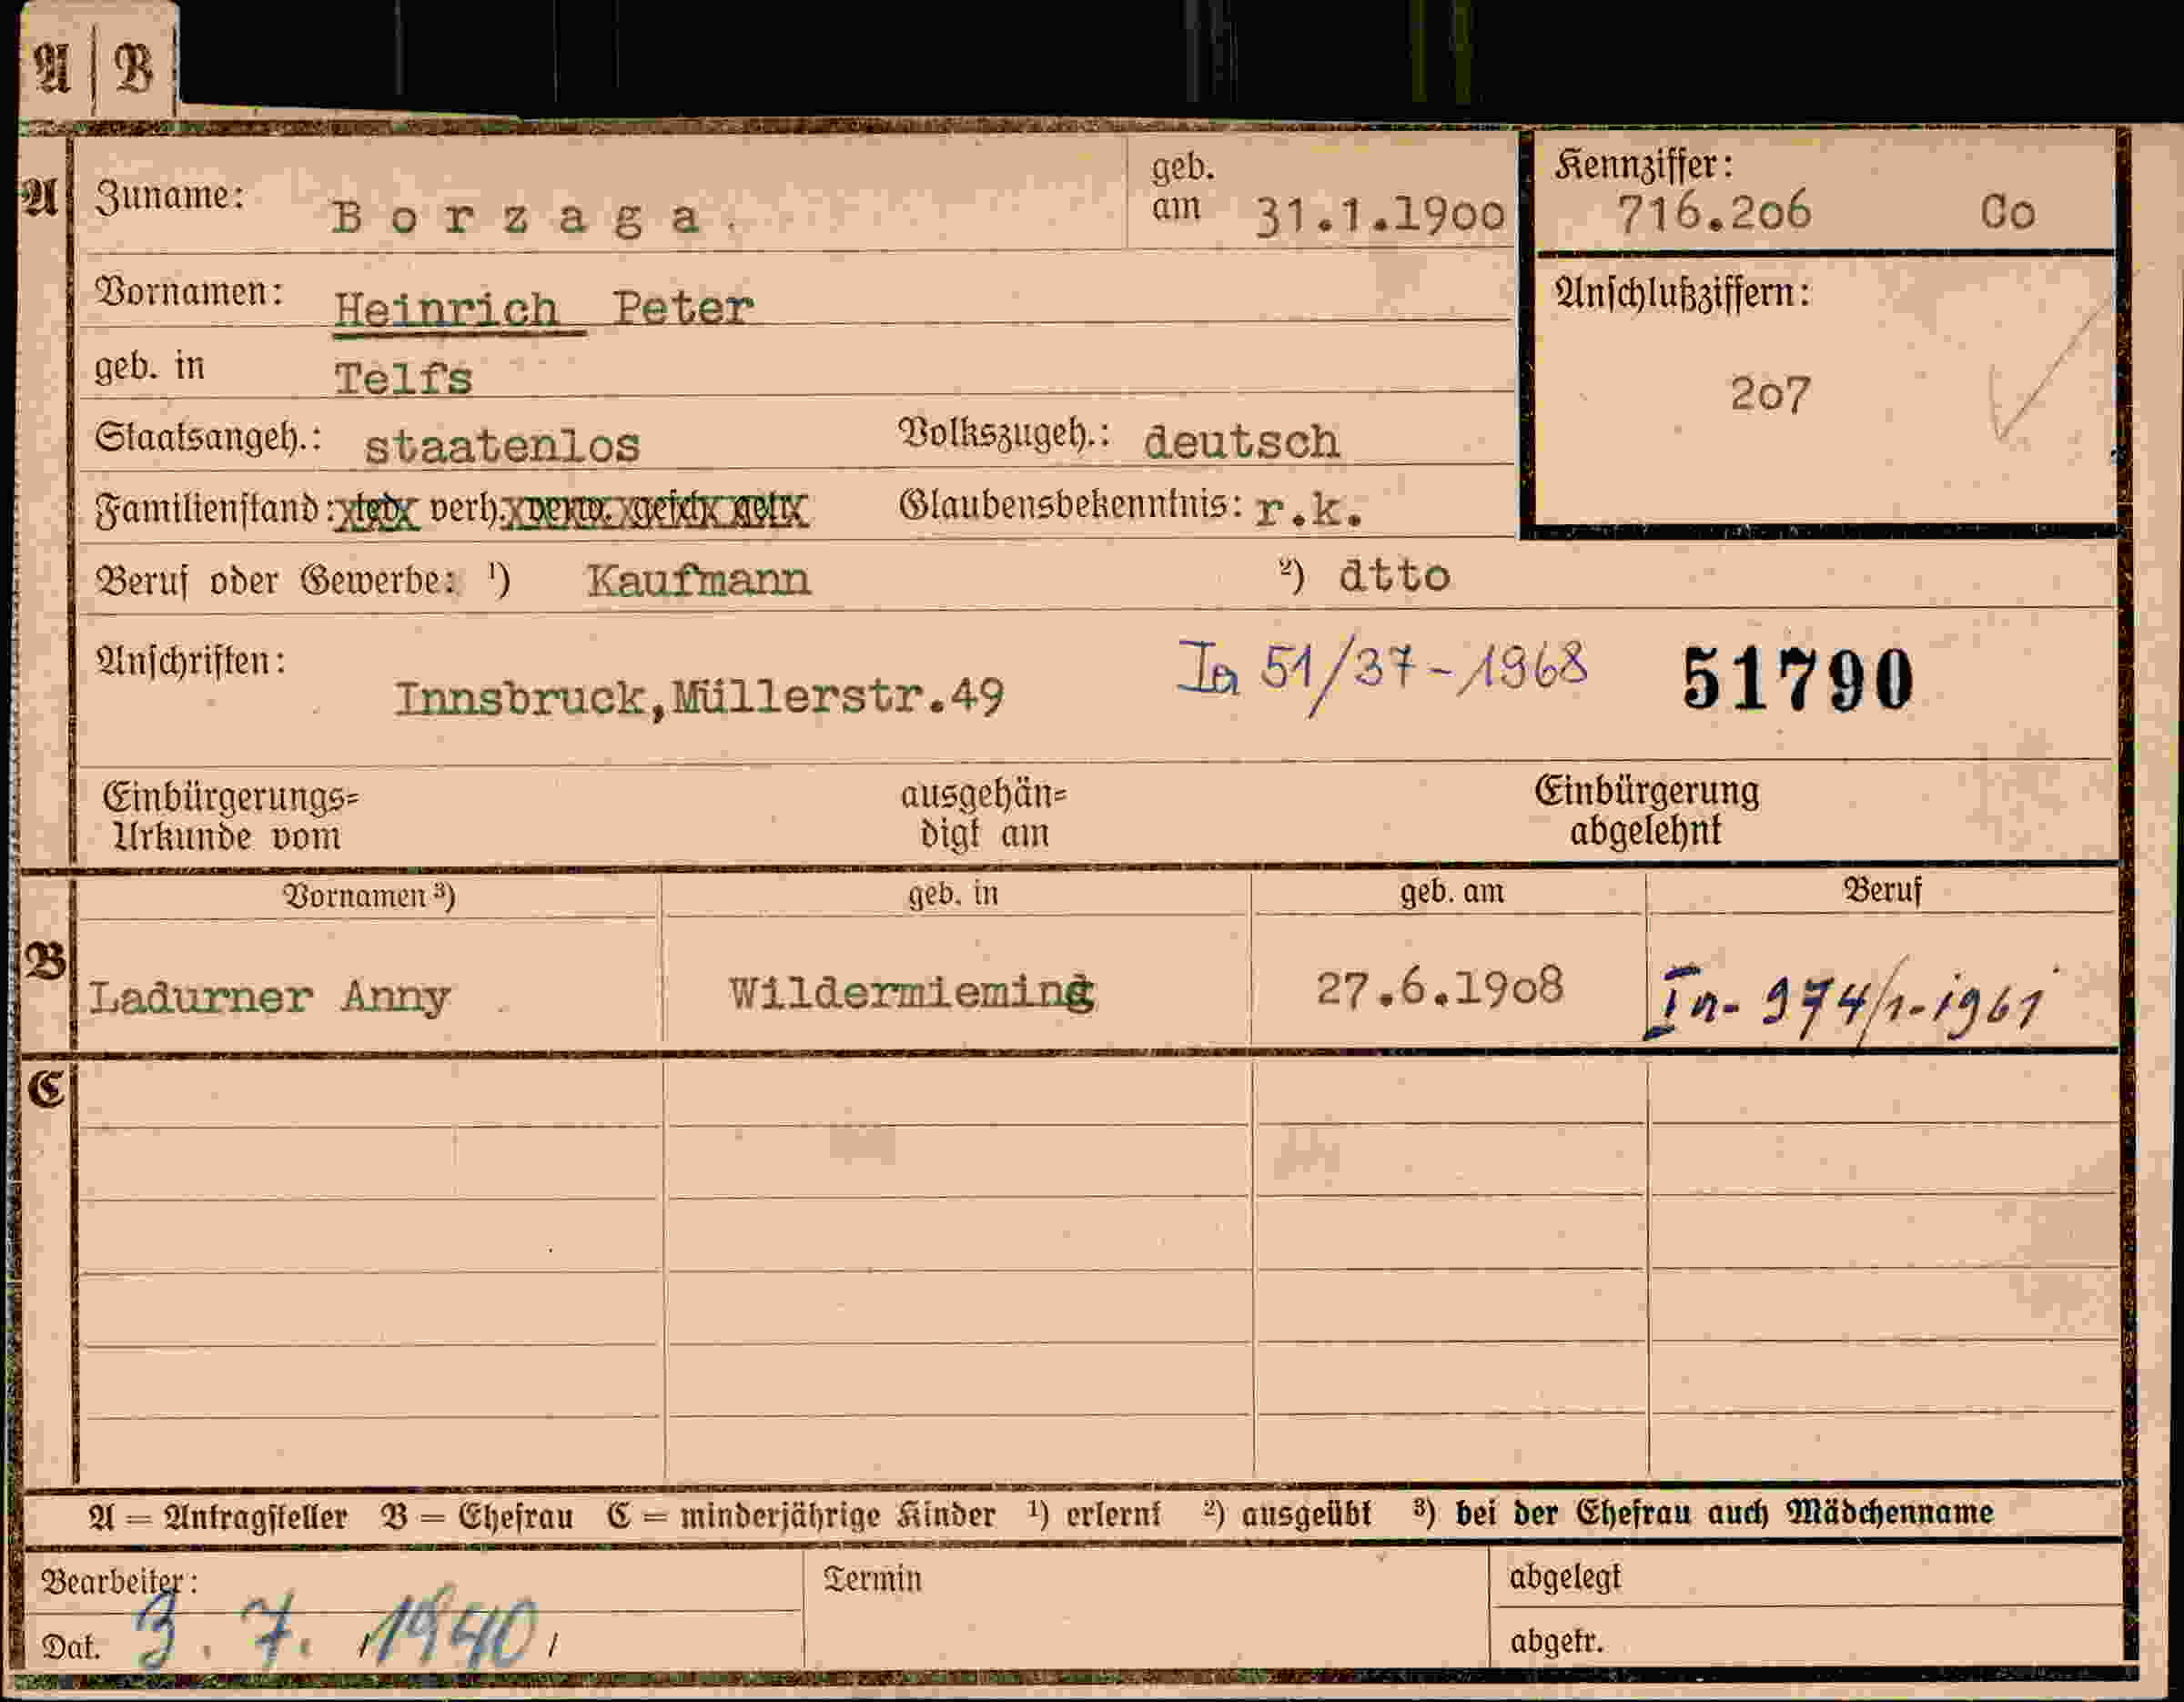 A | B
A Zuname: Borzaga. geb. am 31.1.1900 Kennziffer: 716.206 Co
Vornamen: Heinrich Peter Anschlußziffern:
geb. in Telfs 207
Staatsangeh.: staatenlos Volkszugeh.: deutsch
Familienstand: led. verh. verw. gesch. getr. Glaubensbekenntnis: r.k.
Beruf oder Gewerbe: ¹) Kaufmann ²) dtto
Anschriften: Innsbruck,Müllerstr.49 Ia 51/37-1968 51790
Einbürgerungs= ausgehän= Einbürgerung
Urkunde vom digt am abgelehnt
Vornamen ³) geb. in geb. am Beruf
B Ladurner Anny Wildermieming 27.6.1908 In-974/1-1961
C
A = Antragsteller B = Ehefrau C = minderjährige Kinder ¹) erlernt ²) ausgeübt ³) bei der Ehefrau auch Mädchenname
Bearbeiter: Termin abgelegt
Dat. 3.7.1940 abgetr.